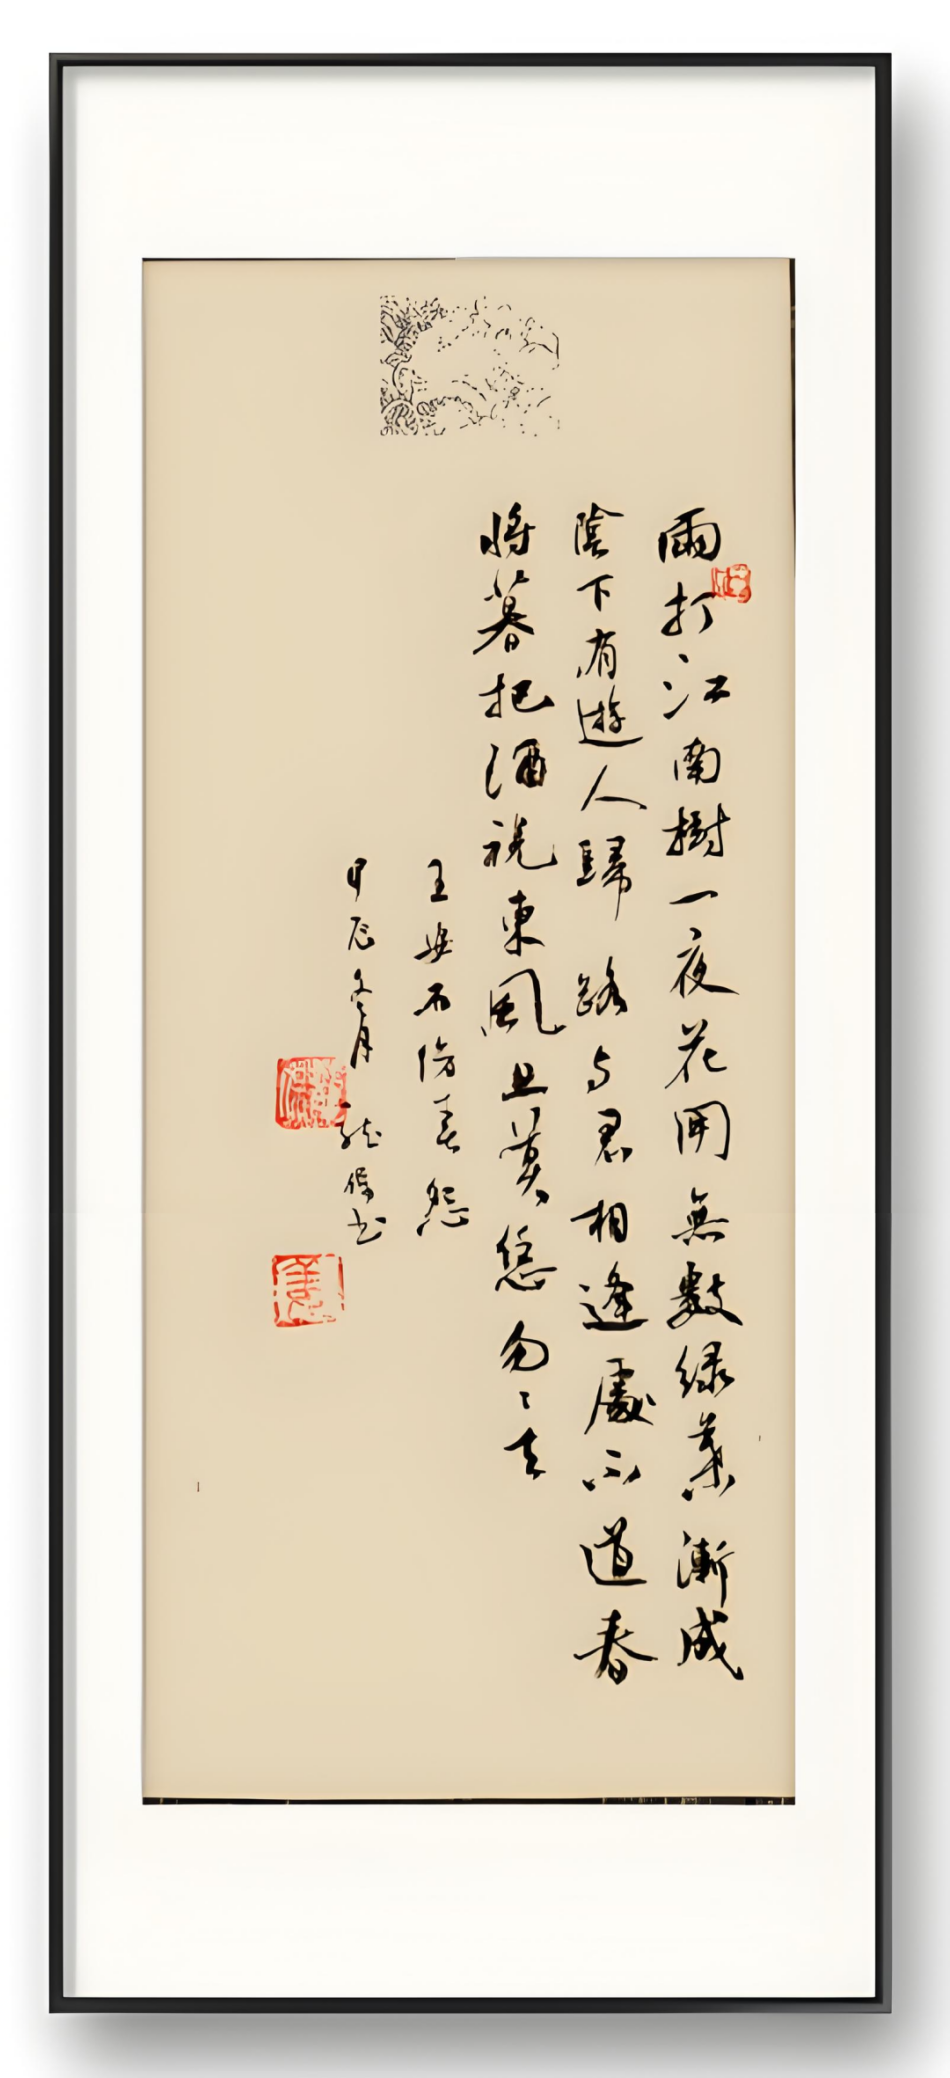 雨打江南樹一夜花開無數綠葉漸成
陰下有遊人歸路与君相逢處不道春
將暮把酒祝東風且莫恁匆〻去
王安石傷春怨
甲辰冬月 书